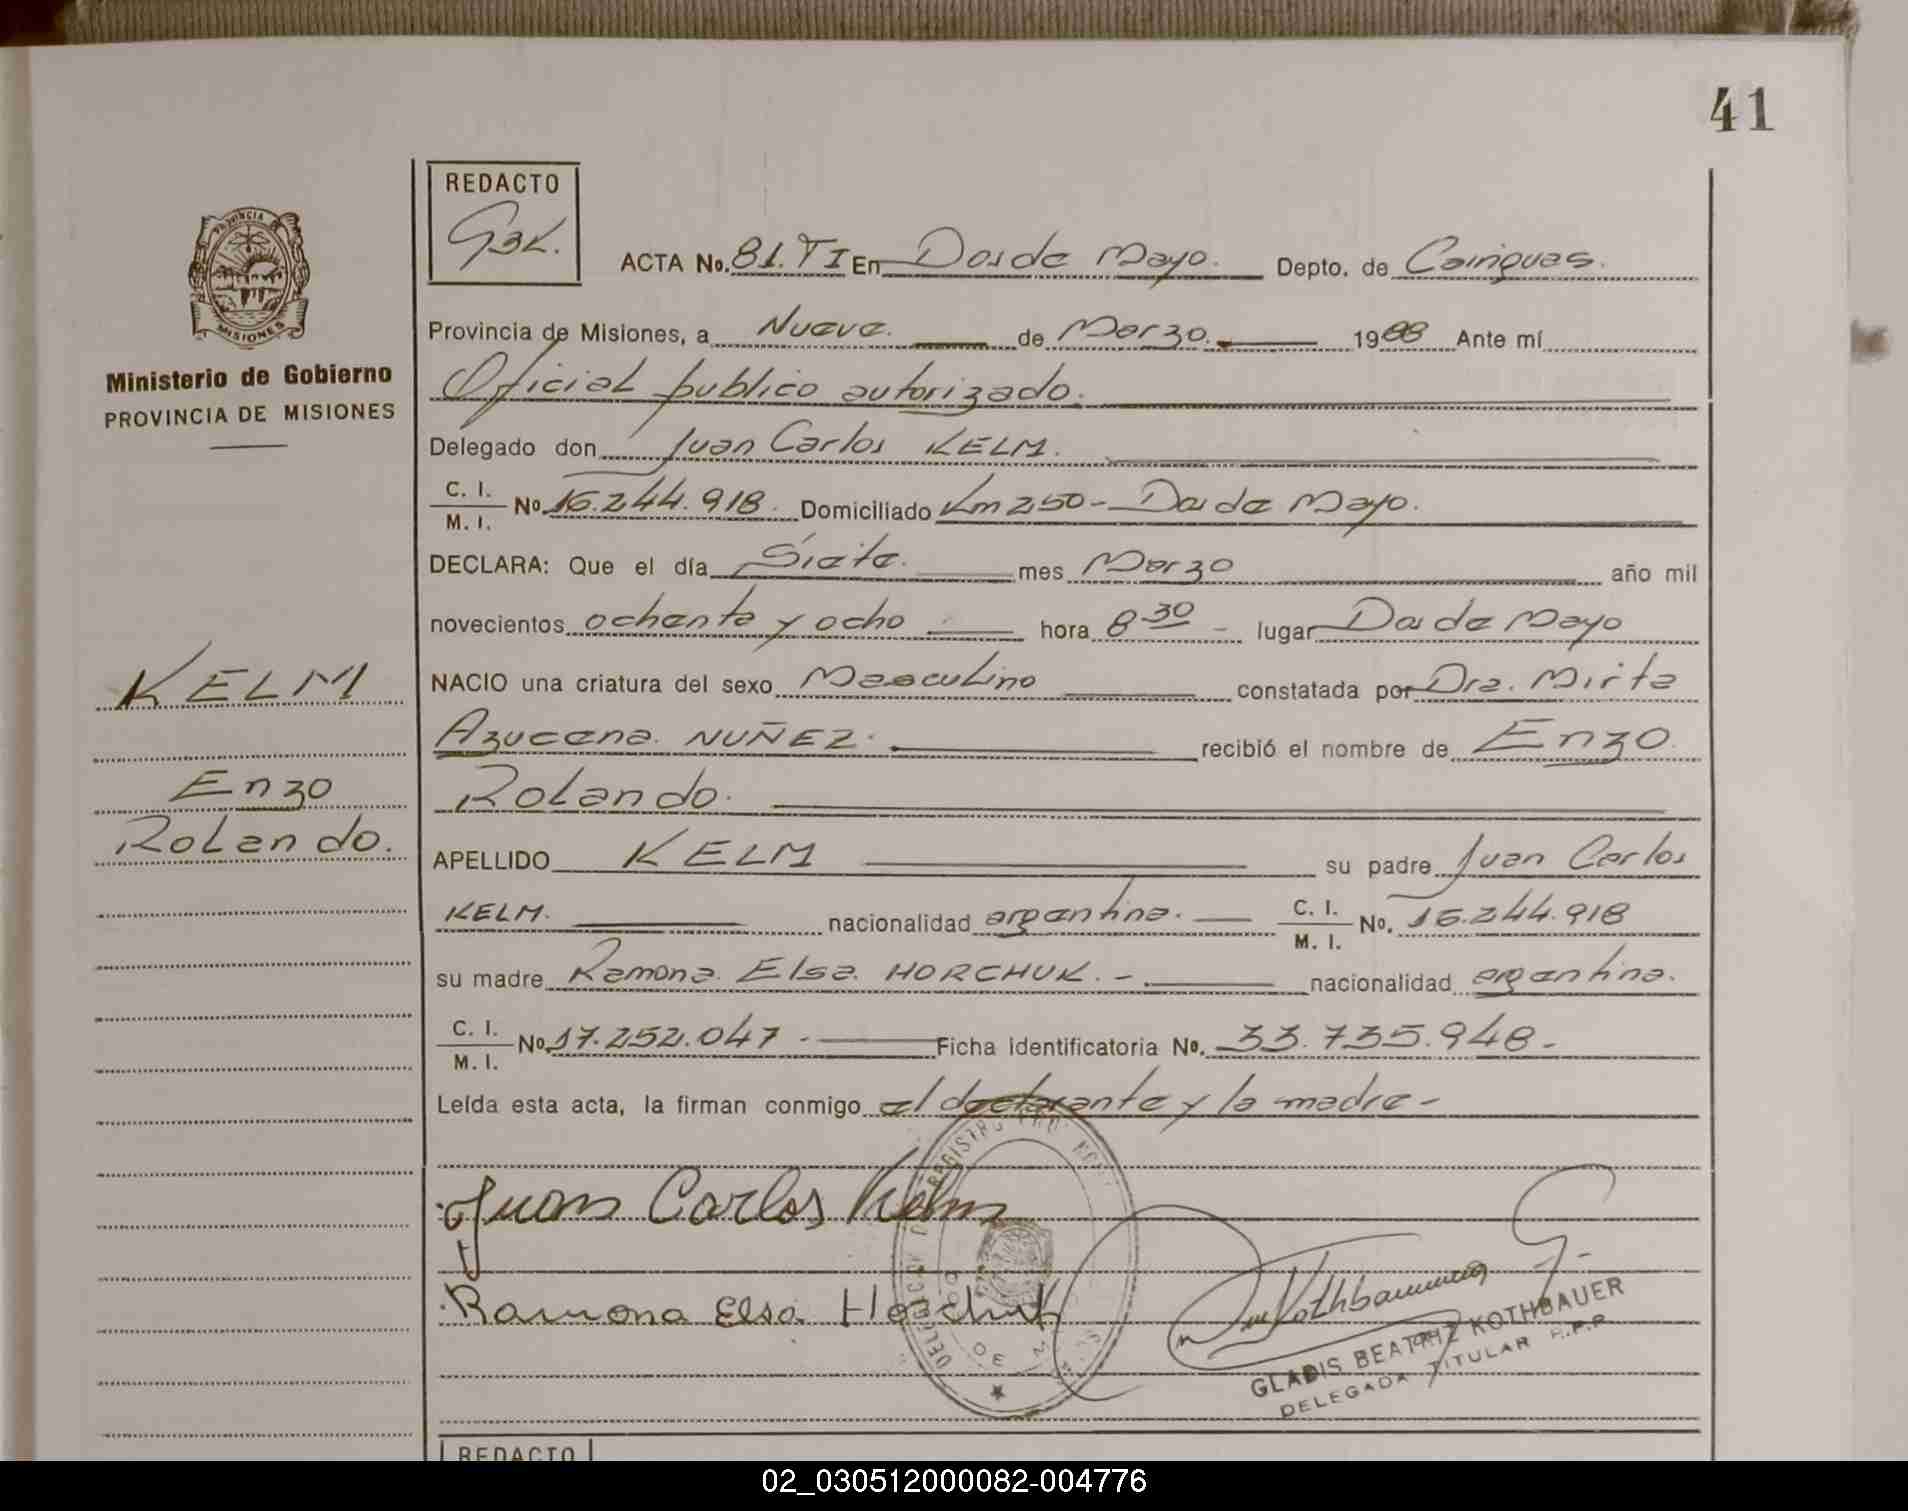 41
REDACTO
GBK.
ACTA No. 81. TI En Dos de Mayo. Depto. de Cainguas.
Provincia de Misiones, a Nueve de Marzo. 1988 Ante mí
Ministerio de Gobierno
PROVINCIA DE MISIONES
Oficial publico autorizado.
Delegado don Juan Carlos KELM.
C. I.
M. I. No. 16.244.918. Domiciliado Km 250 - Dos de Mayo.
DECLARA: Que el día Siete. mes Marzo año mil
novecientos ochenta y ocho hora 8 30 - lugar Dos de Mayo
KELM
NACIO una criatura del sexo Masculino constatada por Dra. Mirta
Azucena. NUÑEZ. recibió el nombre de Enzo.
Enzo
Rolando.
Rolando.
APELLIDO KELM su padre Juan Carlos
KELM. nacionalidad argentina. C. I.
M. I. No. 16.244.918
su madre Ramona Elsa HORCHUK. - nacionalidad argentina.
C. I.
M. I. No. 17.252.047 - Ficha Identificatoria No. 33.735.948-
Leída esta acta, la firman conmigo el declarante y la madre-
Juan Carlos Kelm
Ramona Elsa Horchuk
GLADIS BEATRIZ KOTHBAUER
DELEGADA TITULAR R.P.P.
REDACTO
02_030512000082-004776